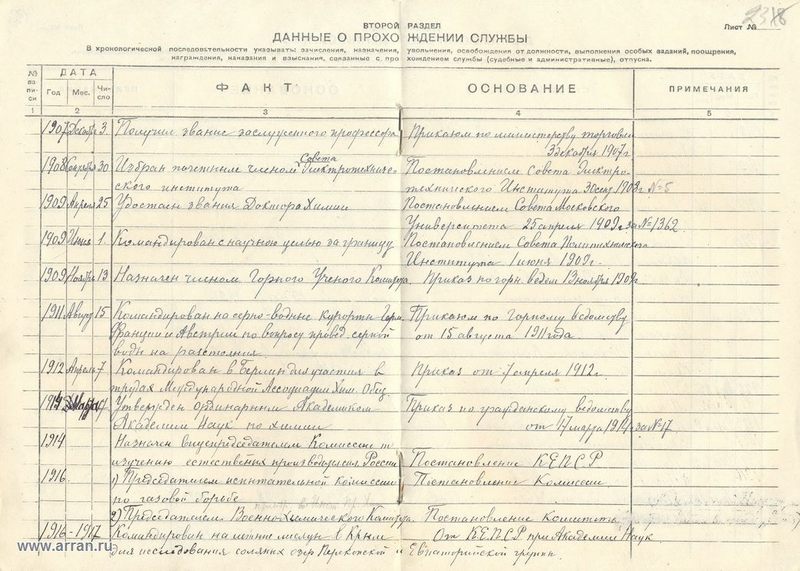 ВТОРОЙ РАЗДЕЛ
ДАННЫЕ О ПРОХОЖДЕНИИ СЛУЖБЫ
Лист №
В хронологической последовательности указывать: зачисления, назначения, увольнения, освобождения от должности, выполнения особых заданий, поощрения,
награждения, наказания и взыскания, связанные с прохождением службы (судебные и административные), отпуска.
№№ записи ДАТА ФАКТ ОСНОВАНИЕ ПРИМЕЧАНИЯ
Год Мес. Число
1 2 3 4 5
1907 Декабря 3 Получил звание заслуженного профессора Приказом по министерству торговли
3 декабря 1907 г
1908 30 Избран почетным членом Совета Электротехниче- Постановлением Совета Электро-
ского института технического Института 1908 г №5
1909 Апреля 25 Удостоен звания Доктора Химии Постановлением Совета Московского
Университета 25 апреля 1909 г за №1362
1909 Июня 1 Командирован с научною целью за границу Постановлением Совета Политехнического
Института 1 июня 1909 г.
1909 Ноября 13 Назначен членом Горного Ученого Комитета Приказ по горн. ведом 13 ноября 1909 г.
1911 Август 15 Командирован на серно-водные курорты
Франции и Австрии по вопросу провод. серной Приказом по Горному ведомству
воды на расстояния. от 15 августа 1911 года.
1912 Апрель 7 Командирован в Берлин для участия в Приказ от 7 апреля 1912 г.
трудах Международной Ассоциации Хим. Общ.
1914 Марта Утвержден ординарным Академиком Приказ по гражданскому ведомству
Академии Наук по химии от 17 марта 1914 г за №17
1914 Назначен вицепредседателем Комиссии по
изучению естественн. производ. сил России Постановление КЕПСР
1916 1) Председателем испытательной комиссии Постановление Комиссии
по газовой борьбе
2) Председателем Военно-Химического Комитета Постановление Комитета
1916-1917 Командирован на летние месяцы в Крым От КЕПСР при Академии Наук
для исследования соляных озер Перекопской и Евпаторийской группы
www.arran.ru